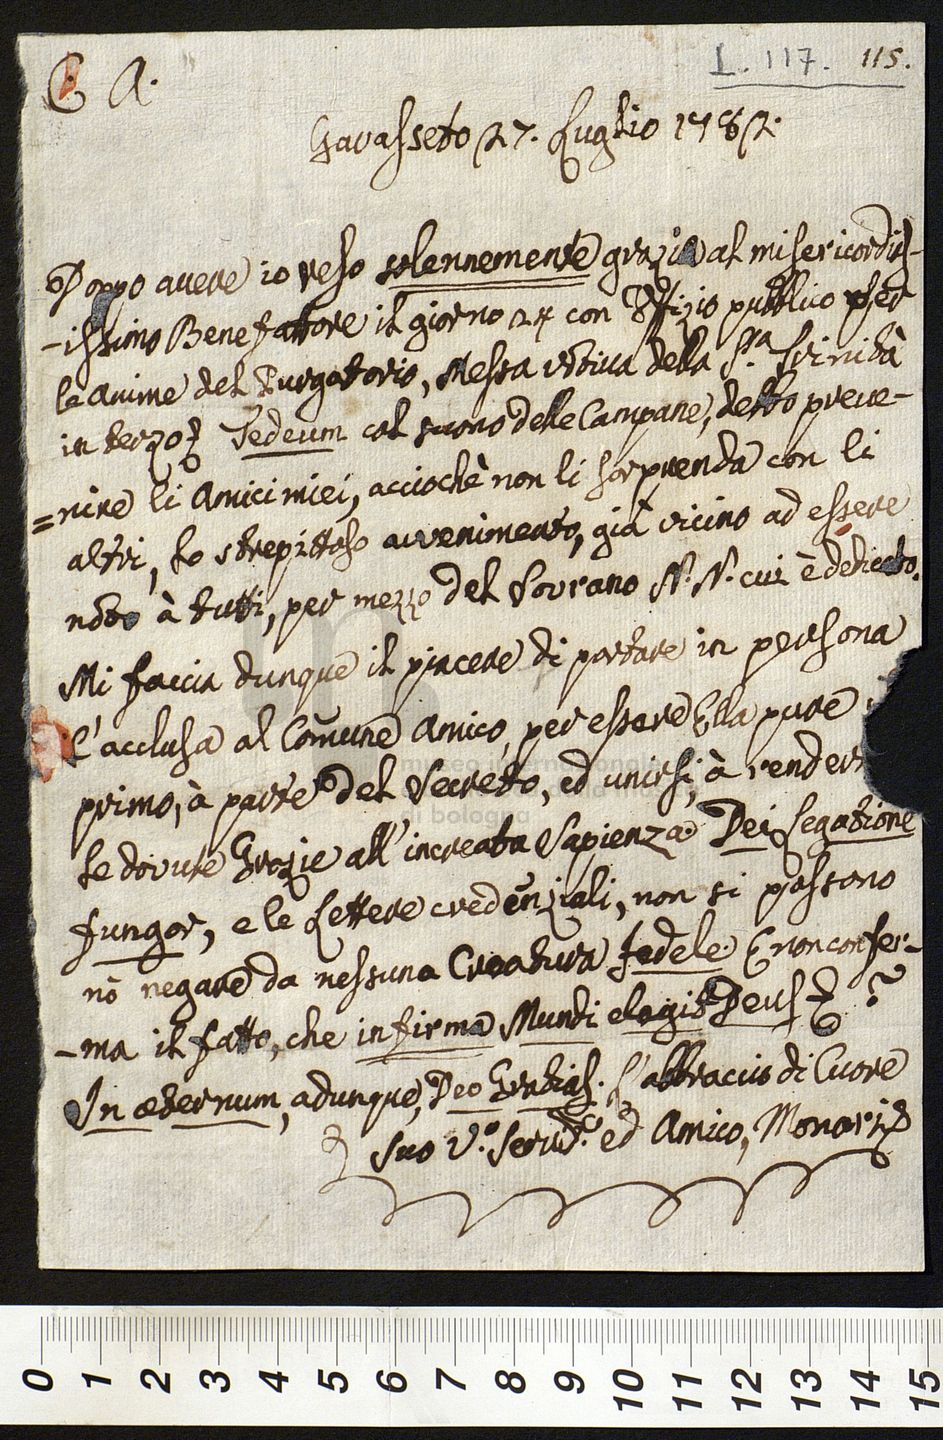 C. A.
L. 117. 115.
Gavasseto 27. Luglio 1782.
Doppo avere io reso solennemente grazie al misericordis-
-issimo Benefattore il giorno 24 con Uffizio pubblico per
le Anime del Purgatorio, Messa votiva della S.ma Trinità
in terzo, Tedeum col suono delle Campane, debbo preve-
=nire li Amici miei, acciochè non li sorprenda con li
altri, lo strepittoso avvenimento, già vicino ad essere
noto à tutti, per mezzo del Sovrano N. N. cui è dedicato.
Mi faccia dunque il piacere di portare in persona
l'acclusa al Comune Amico, per essere Ella pure
primo, à parte del Secreto, ed unirsi, à render
le dovute Grazie all'increata Sapienza. Dei legatione
fungor, e le Lettere credenziali, non si possono
nò negare da nessuna Creatura fedele. E non confer-
-ma il fatto, che infirma Mundi elegit Deus ?
In æternum, adunque, Deo Gratias. L'abbraccio di Cuore
suo V.o Serv.e ed Amico, Monari
museo internazionale
di bologna
0 1 2 3 4 5 6 7 8 9 10 11 12 13 14 15